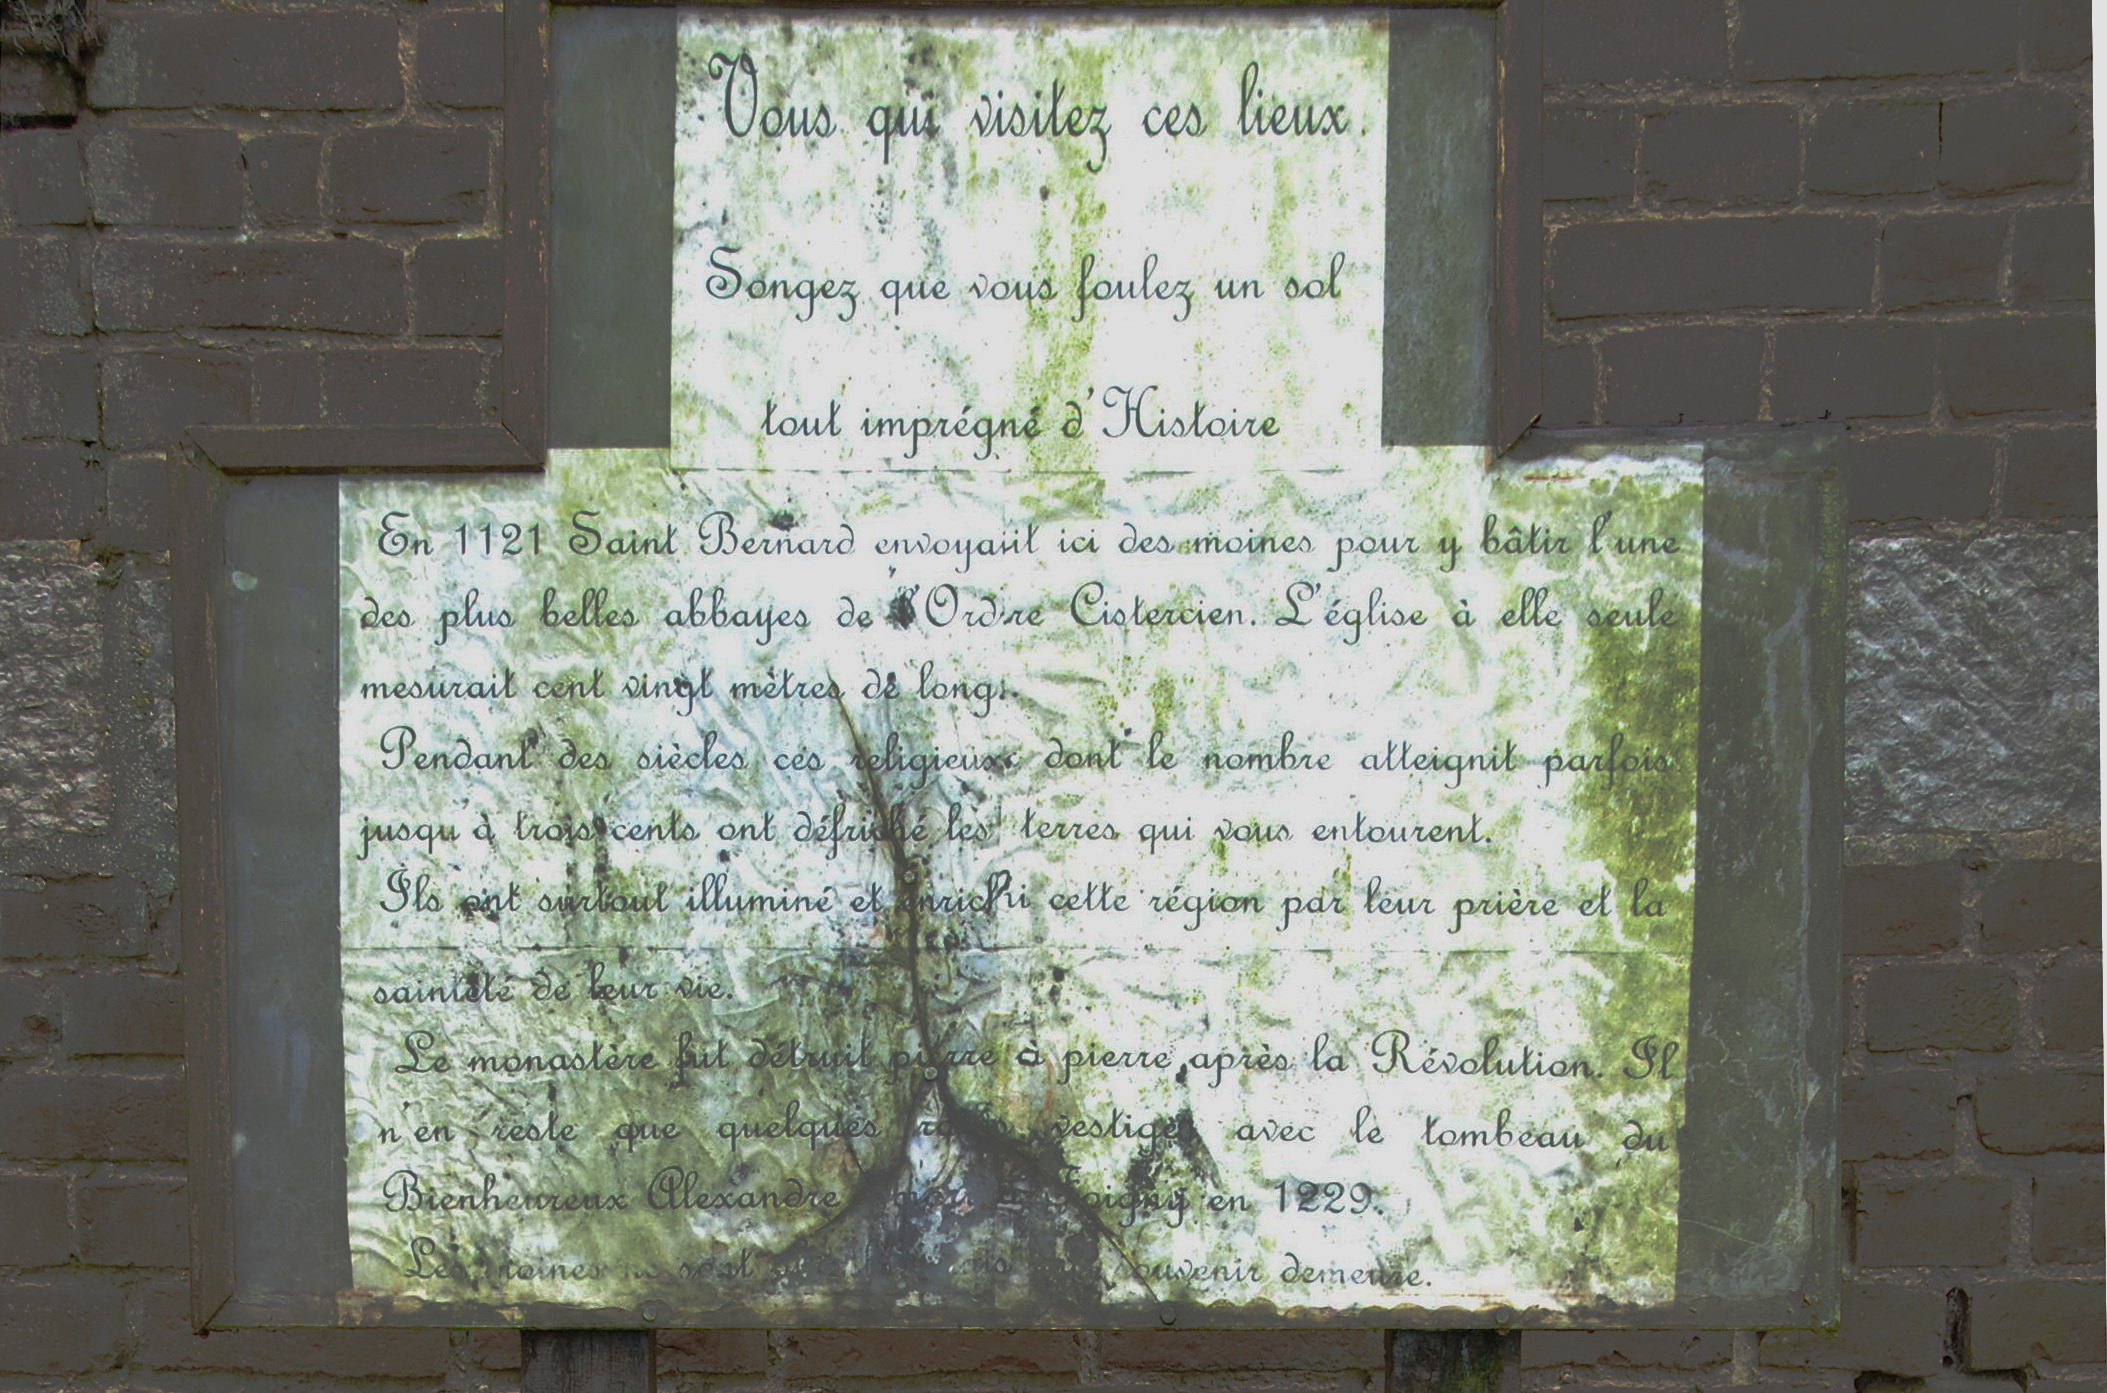 Vous qui visitez ces lieux.
Songez que vous foulez un sol
tout imprégné d'Histoire
En 1121 Saint Bernard envoyait ici des moines pour y bâtir l'une
des plus belles abbayes de l'Ordre Cistercien. L'église à elle seule
mesurait cent vingt mètres de long.
Pendant des siècles ces religieux dont le nombre atteignit parfois
jusqu'à trois cents ont défriché les terres qui vous entourent.
Ils ont surtout illuminé et enrichi cette région par leur prière et la
sainteté de leur vie.
Le monastère fut détruit pierre à pierre après la Révolution. Il
n'en reste que quelques vestiges avec le tombeau du
Bienheureux Alexandre Foigny en 1229.
Les moines sont souvenir demeure.